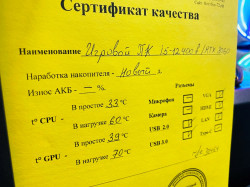 Сертификат качества
Наименование Игровой ПК i5-12400F/RTX 3060
Наработка накопителя - Новый
Износ АКБ - — %.
Разъемы
t° CPU -
В простое 33 °C
В нагрузке 60 °C
t° GPU -
В простое 39 °C
В нагрузке 70 °C
Микрофон
Камера
USB 2.0
USB 3.0
VGA
HDMI
LAN
Type-C